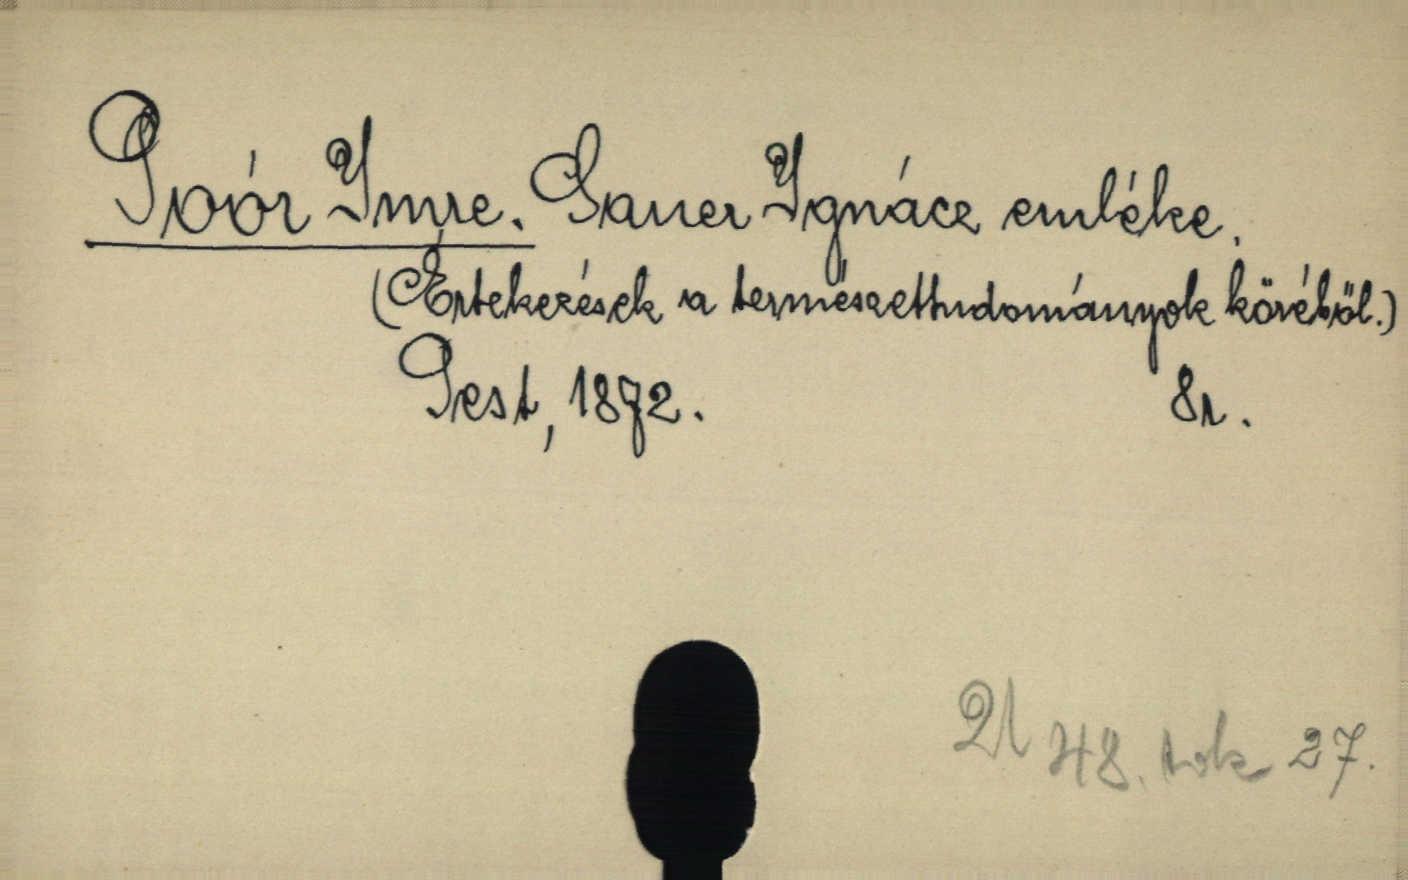 Poór Imre. Sauer Ignácz emléke.
(Értekezések a természettudományok köréből.)
Pest, 1872. 8r.
A 48. tok 27.